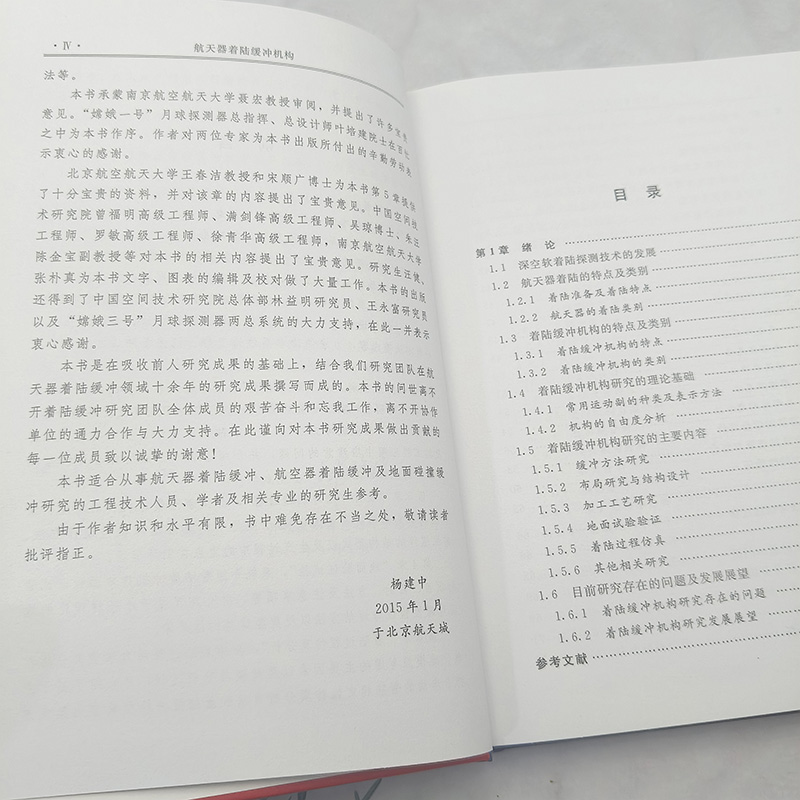 · Ⅳ ·
航天器着陆缓冲机构
法等。
本书承蒙南京航空航天大学聂宏教授审阅，并提出了许多宝贵
意见。“嫦娥一号”月球探测器总指挥、总设计师叶培建院士在百忙
之中为本书作序。作者对两位专家为本书出版所付出的辛勤劳动表
示衷心的感谢。
北京航空航天大学王春洁教授和宋顺广博士为本书第5章提供
了十分宝贵的资料，并对该章的内容提出了宝贵意见。中国空间技
术研究院曾福明高级工程师、满剑锋高级工程师、吴琼博士、朱汪
工程师、罗敏高级工程师、徐青华高级工程师，南京航空航天大学
陈金宝副教授等对本书的相关内容提出了宝贵意见。研究生汪健、
张朴真为本书文字、图表的编辑及校对做了大量工作。本书的出版
还得到了中国空间技术研究院总体部林益明研究员、王永富研究员
以及“嫦娥三号”月球探测器两总系统的大力支持，在此一并表示
衷心感谢。
本书是在吸收前人研究成果的基础上，结合我们研究团队在航
天器着陆缓冲领域十余年的研究成果撰写而成的。本书的问世离不
开着陆缓冲研究团队全体成员的艰苦奋斗和忘我工作，离不开协作
单位的通力合作与大力支持。在此谨向对本书研究成果做出贡献的
每一位成员致以诚挚的谢意！
本书适合从事航天器着陆缓冲、航空器着陆缓冲及地面碰撞缓
冲研究的工程技术人员、学者及相关专业的研究生参考。
由于作者知识和水平有限，书中难免存在不当之处，敬请读者
批评指正。
杨建中
2015年1月
于北京航天城
目 录
第1章 绪 论
1.1 深空软着陆探测技术的发展
1.2 航天器着陆的特点及类别
1.2.1 着陆准备及着陆特点
1.2.2 航天器的着陆类别
1.3 着陆缓冲机构的特点及类别
1.3.1 着陆缓冲机构的特点
1.3.2 着陆缓冲机构的类别
1.4 着陆缓冲机构研究的理论基础
1.4.1 常用运动副的种类及表示方法
1.4.2 机构的自由度分析
1.5 着陆缓冲机构研究的主要内容
1.5.1 缓冲方法研究
1.5.2 布局研究与结构设计
1.5.3 加工工艺研究
1.5.4 地面试验验证
1.5.5 着陆过程仿真
1.5.6 其他相关研究
1.6 目前研究存在的问题及发展展望
1.6.1 着陆缓冲机构研究存在的问题
1.6.2 着陆缓冲机构研究发展展望
参考文献